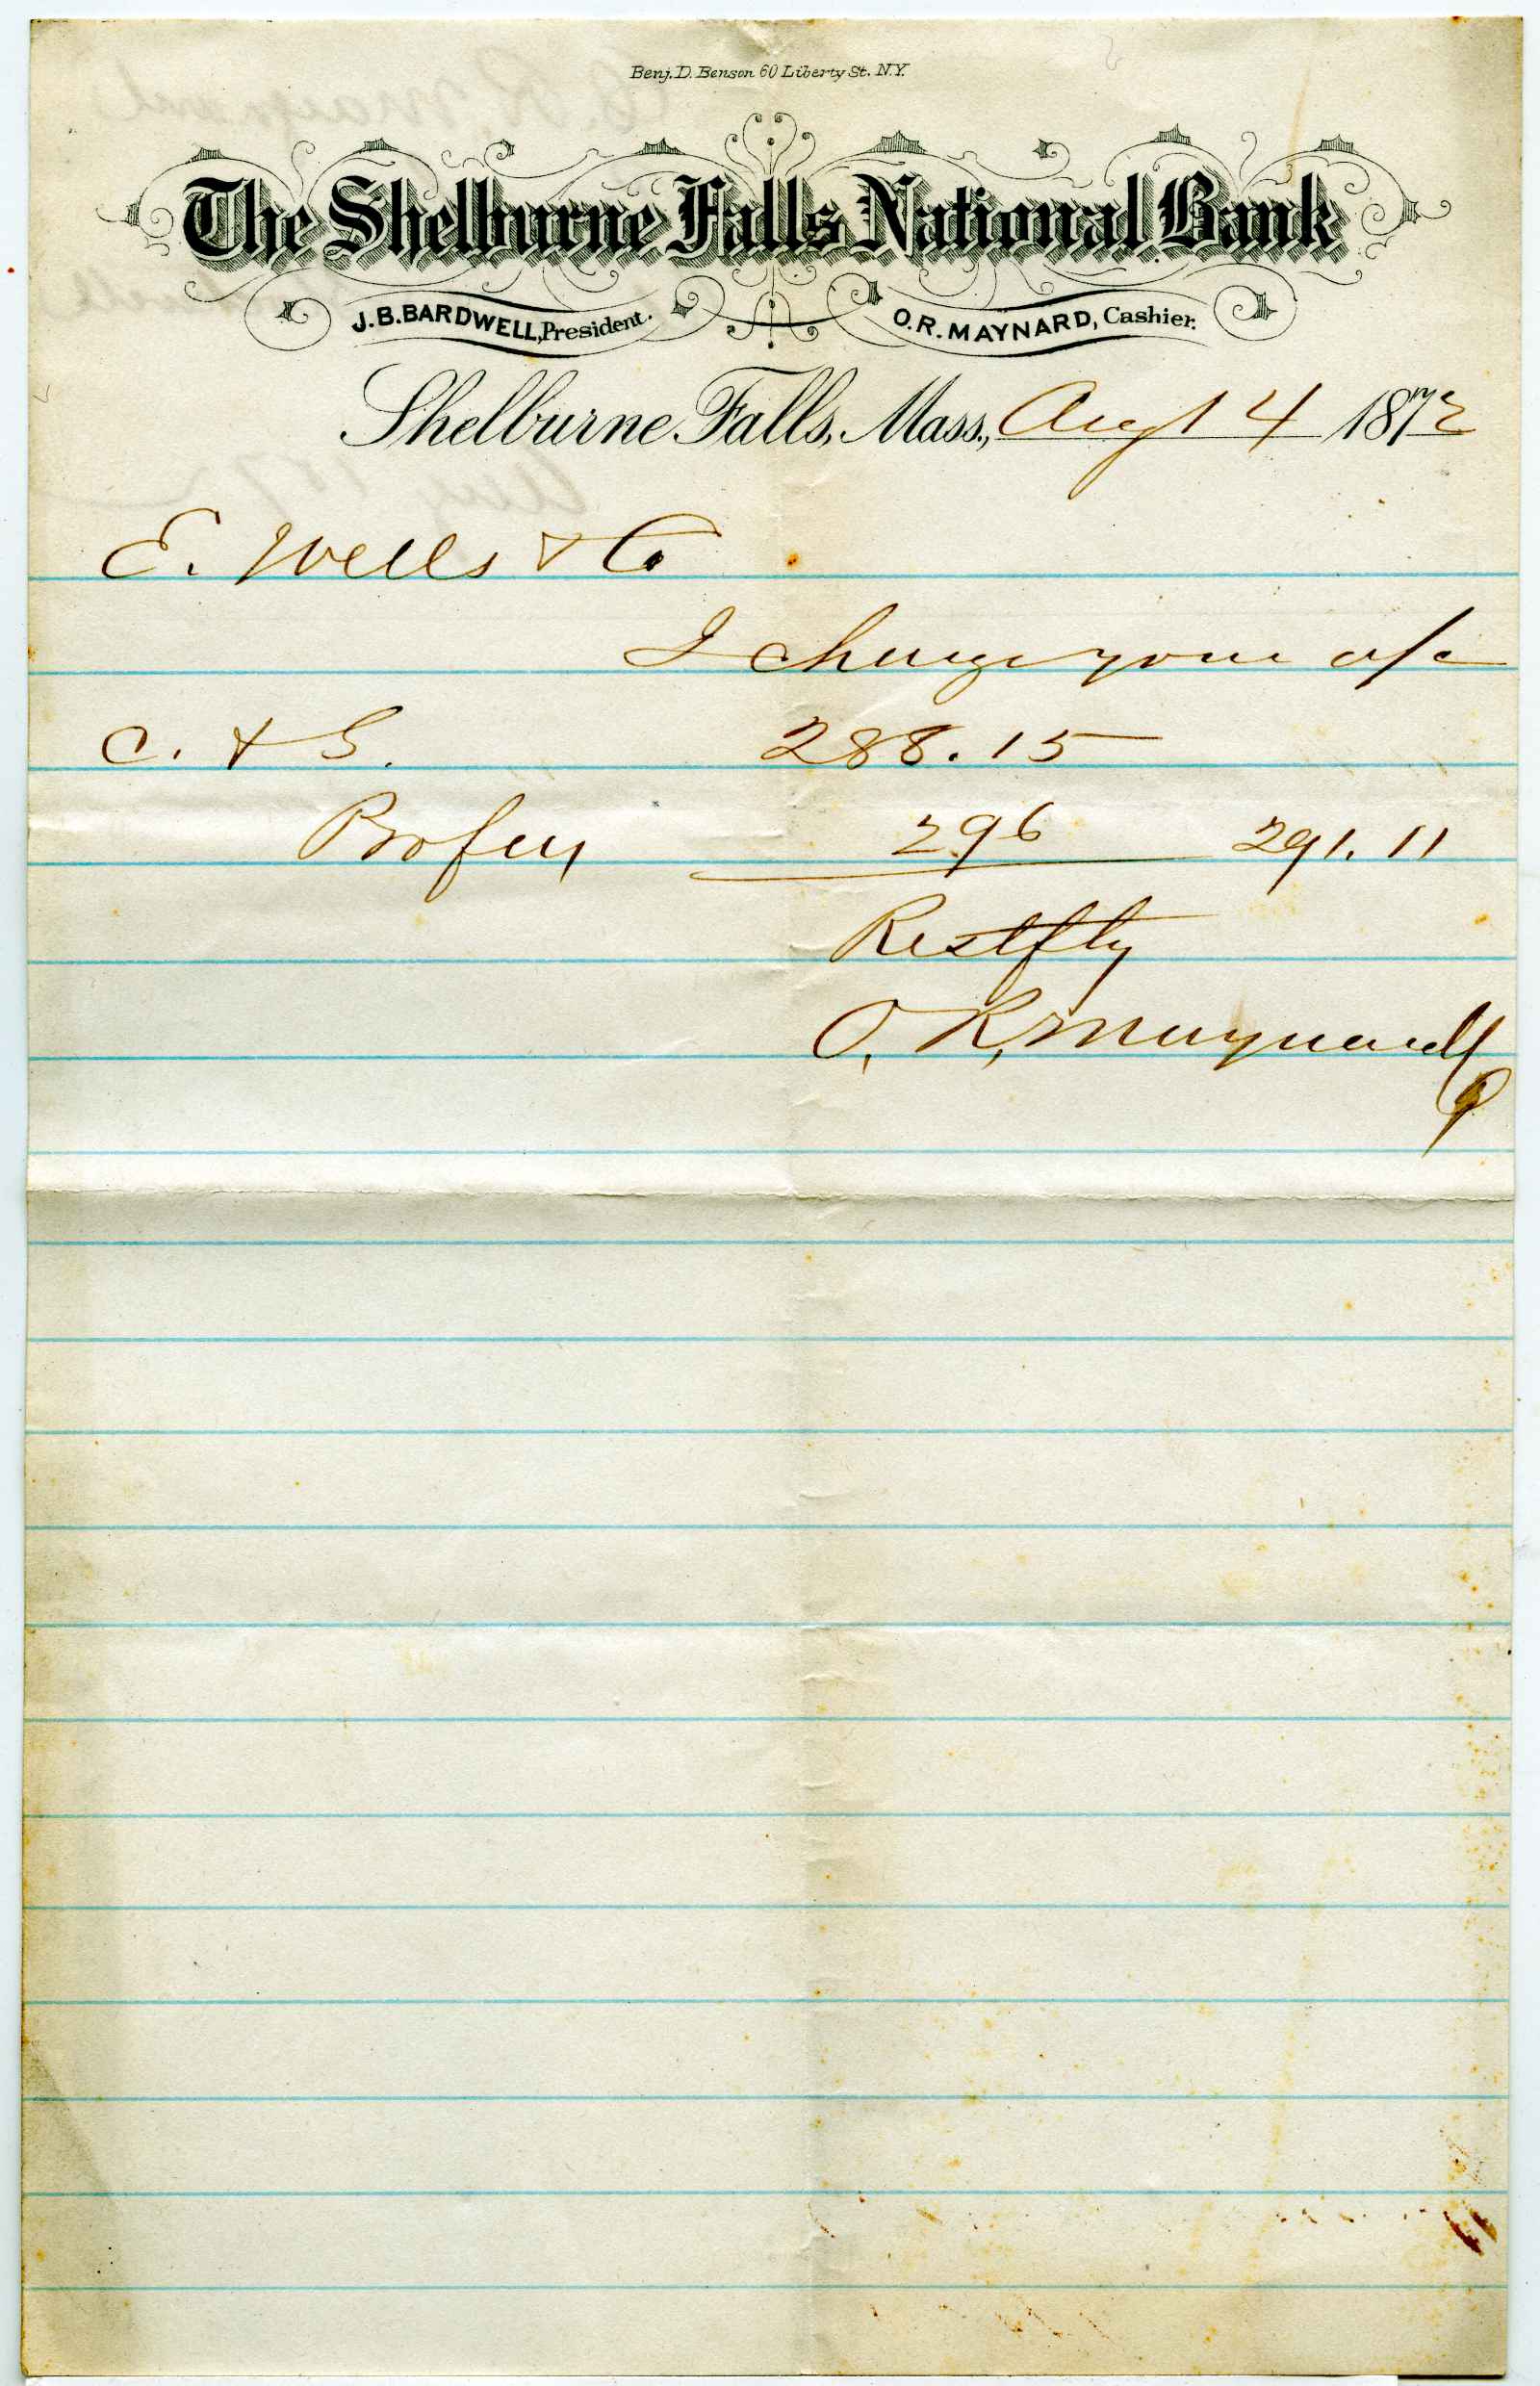 Benj. D. Benson 60 Liberty St. N.Y.
The Shelburne Falls National Bank
J. B. BARDWELL, President. O. R. MAYNARD, Cashier.
Shelburne Falls, Mass., Augt 4 1872
E. Wells & Co
I charge your a/c
C. & G. 288.15
296 291.11
Restfly
O. R. Maynard